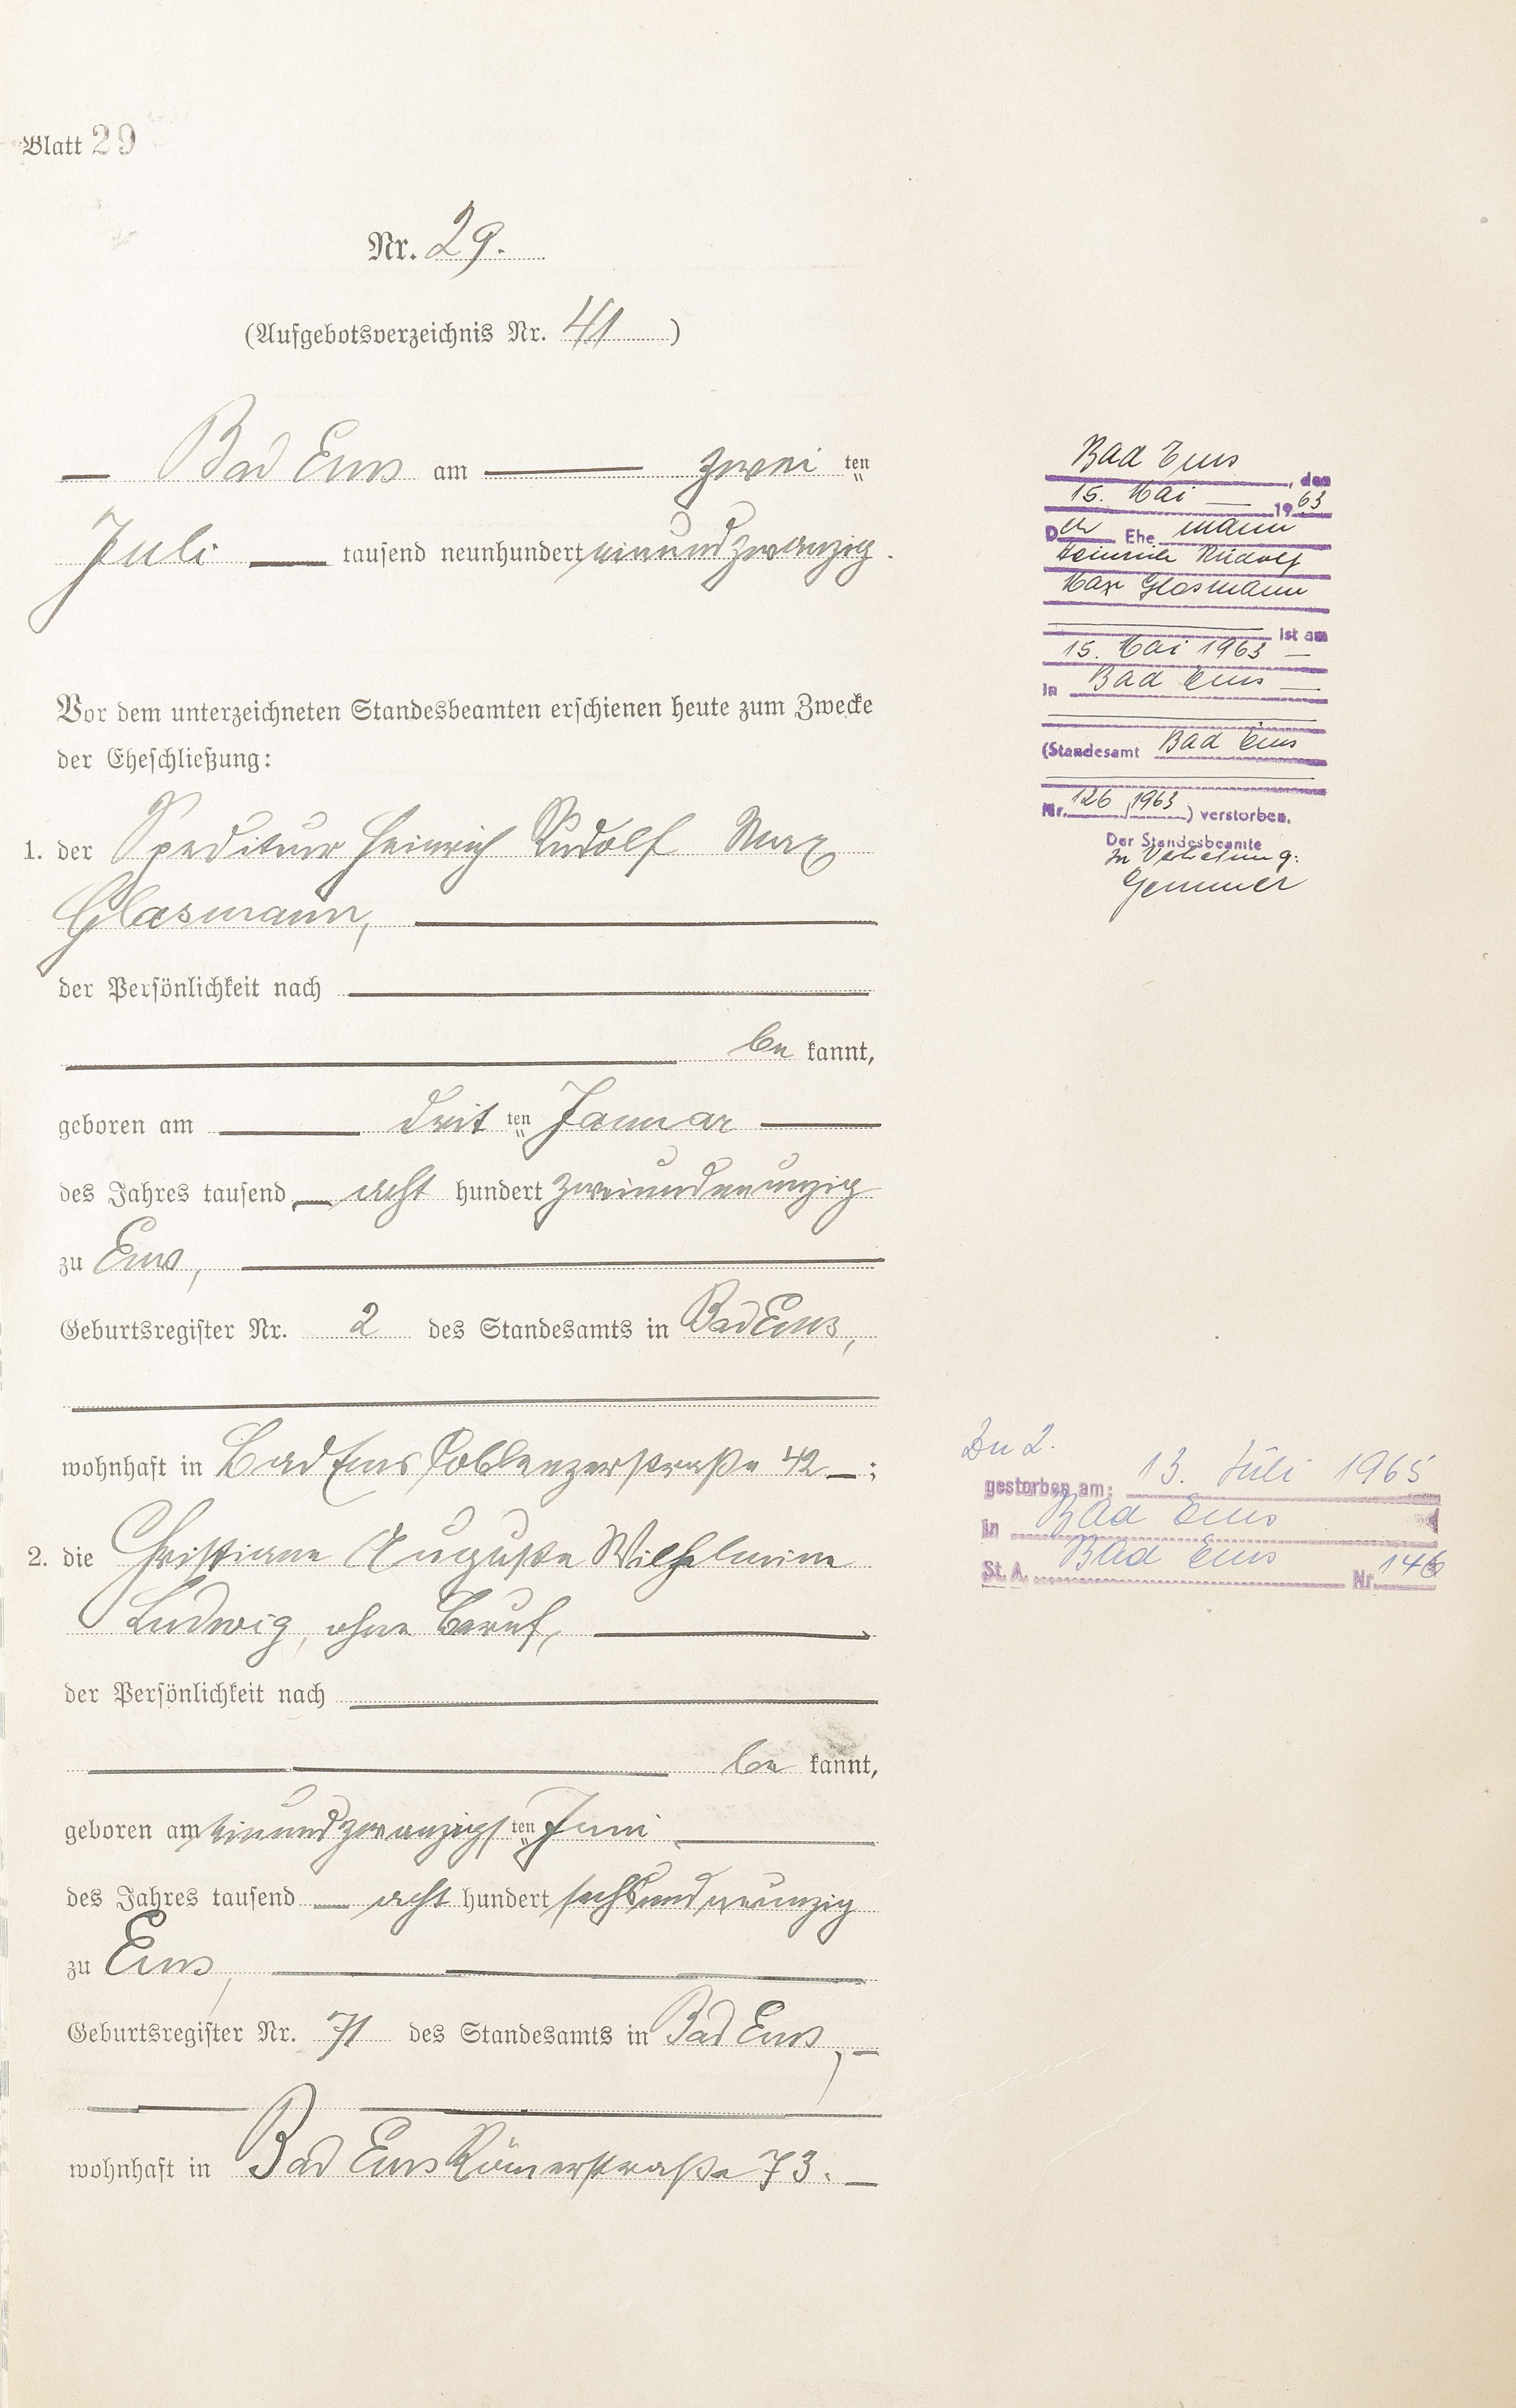 Blatt 29
Nr. 29.
(Aufgebotsverzeichnis Nr. 41)
Bad Ems am zwei ten
Juli tausend neunhundert einundzwanzig.
Vor dem unterzeichneten Standesbeamten erschienen heute zum Zwecke
der Eheschließung:
1. der Spediteur Heinrich Rudolf Max
Glasmann,
der Persönlichkeit nach
be kannt,
geboren am drit ten Januar
des Jahres tausend acht hundert zweiundneunzig
zu Ems,
Geburtsregister Nr. 2 des Standesamts in Bad Ems,
wohnhaft in Bad Ems Coblenzerstraße 42 ;
2. die Christiane Auguste Wilhelmine
Ludwig, ohne Beruf,
der Persönlichkeit nach
be kannt,
geboren am einundzwanzigs ten Juni
des Jahres tausend acht hundert sechsundneunzig
zu Ems,
Geburtsregister Nr. 71 des Standesamts in Bad Ems,
wohnhaft in Bad Ems Römerstraße 73.
Bad Ems, den
15. Mai 1963
Der Ehemann
Heinrich Rudolf
Max Glasmann
ist am
15. Mai 1963
in Bad Ems
(Standesamt Bad Ems
Nr. 126/1963) verstorben.
Der Standesbeamte
In Vertretung:
Gemmer
Zu 2.
gestorben am: 13. Juli 1965
in Bad Ems
St. A. Bad Ems Nr. 146